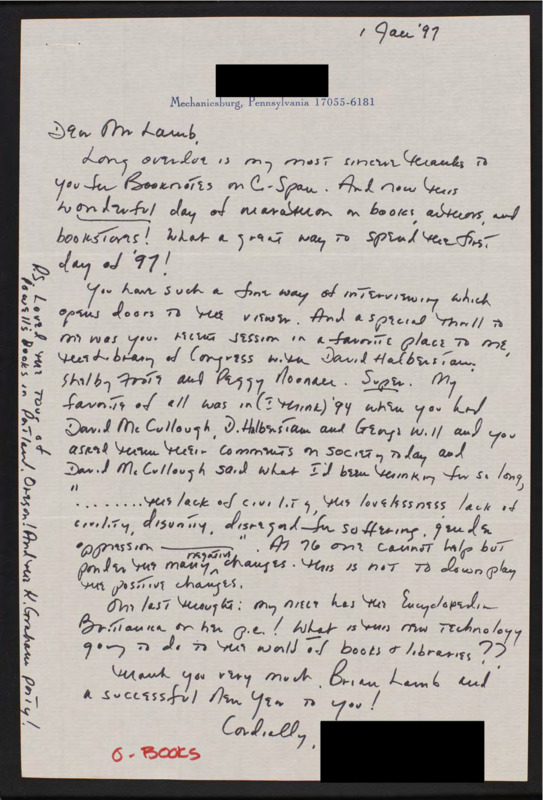 1 Jan '97
Mechanicsburg, Pennsylvania 17055-6181
Dear Mr Lamb,
Long overdue is my most sincere thanks to
you for Booknotes on C-Span. And now this
wonderful day of marathon on books, authors, and
bookstores! What a great way to spend the first
day of '97!
You have such a fine way of interviewing which
opens doors to the viewer. And a special thrill to
me was your recent session in a favorite place to me,
the Library of Congress with David Halberstam,
Shelby Foote and Peggy Noonan. Super. My
favorite of all was in (I think) '94 when you had
David McCullough, D. Halberstam and George Will and you
asked them their comments on society today and
David McCullough said what I'd been thinking for so long,
"........ the lack of civility, the lovelessness, lack of
civility, disunity, disregard for suffering, gender
oppression ———". At 76 one cannot help but
ponder the many negative changes. This is not to down play
the positive changes.
One last thought: my niece has the Encyclopedia
Britannica on her p.c.! What is this new technology
going to do to the world of books & libraries??
Thank you very much, Brian Lamb and
a successful New Year to you!
Cordially,
PS Loved the tour of
Powell's Books in Portland, Oregon! And the K. Graham party!
6 - BOOKS